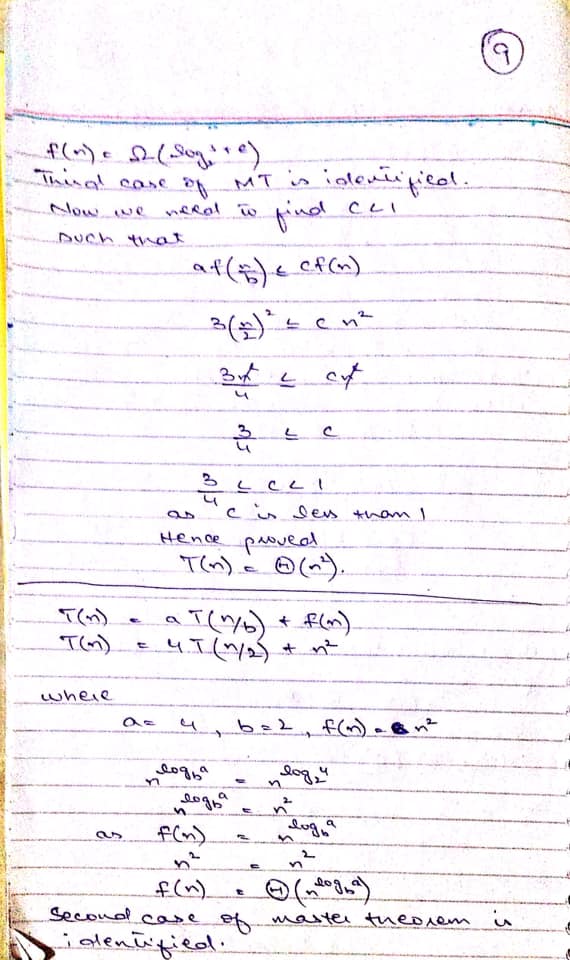 9
f(n) = Ω(log
Third case of MT is identified.
Now we need to find c<1
such that
af(n/b) ≤ cf(n)
3(n/2)² ≤ c n²
3n²/4 ≤ cn²
3/4 ≤ c
3/4 ≤ c < 1
as c is less than 1
Hence proved
T(n) = Θ(n²).
T(n) = aT(n/b) + f(n)
T(n) = 4T(n/2) + n²
where
a = 4, b = 2, f(n) = n²
n^log_b a = n^log_2 4
n^log_b a = n²
as f(n) = n^log_b a
n² = n²
f(n) = Θ(n^log_b a)
Second case of master theorem is
identified.